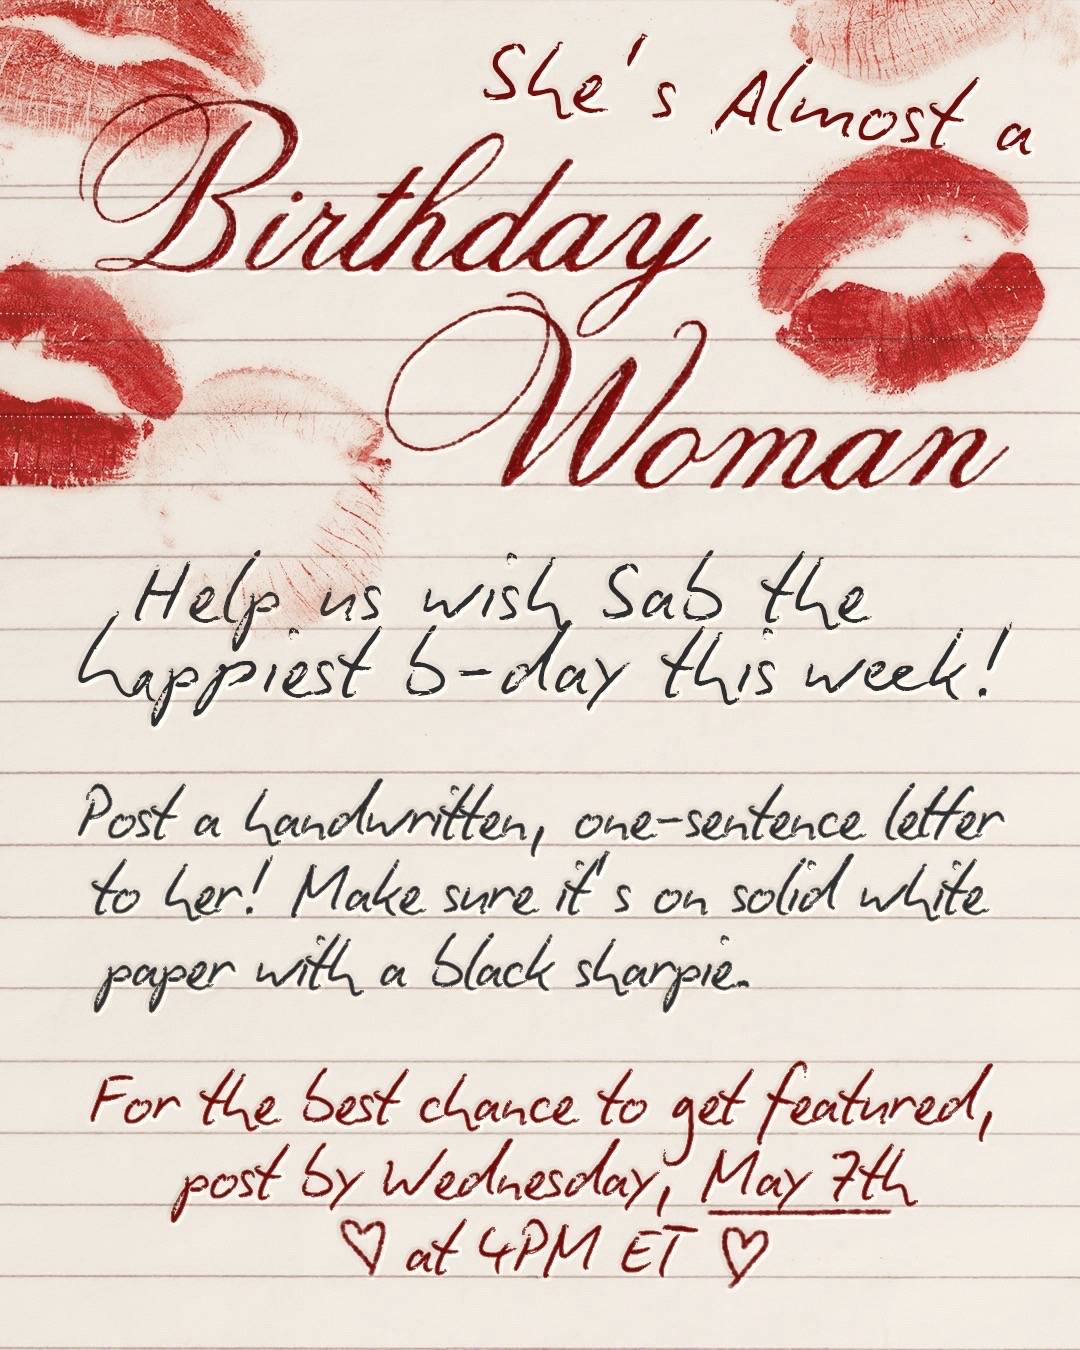 She's Almost a
Birthday
Woman
Help us wish Sab the
happiest b-day this week!
Post a handwritten, one-sentence letter
to her! Make sure it's on solid white
paper with a black sharpie.
For the best chance to get featured,
post by Wednesday, May 7th
♡ at 4PM ET ♡